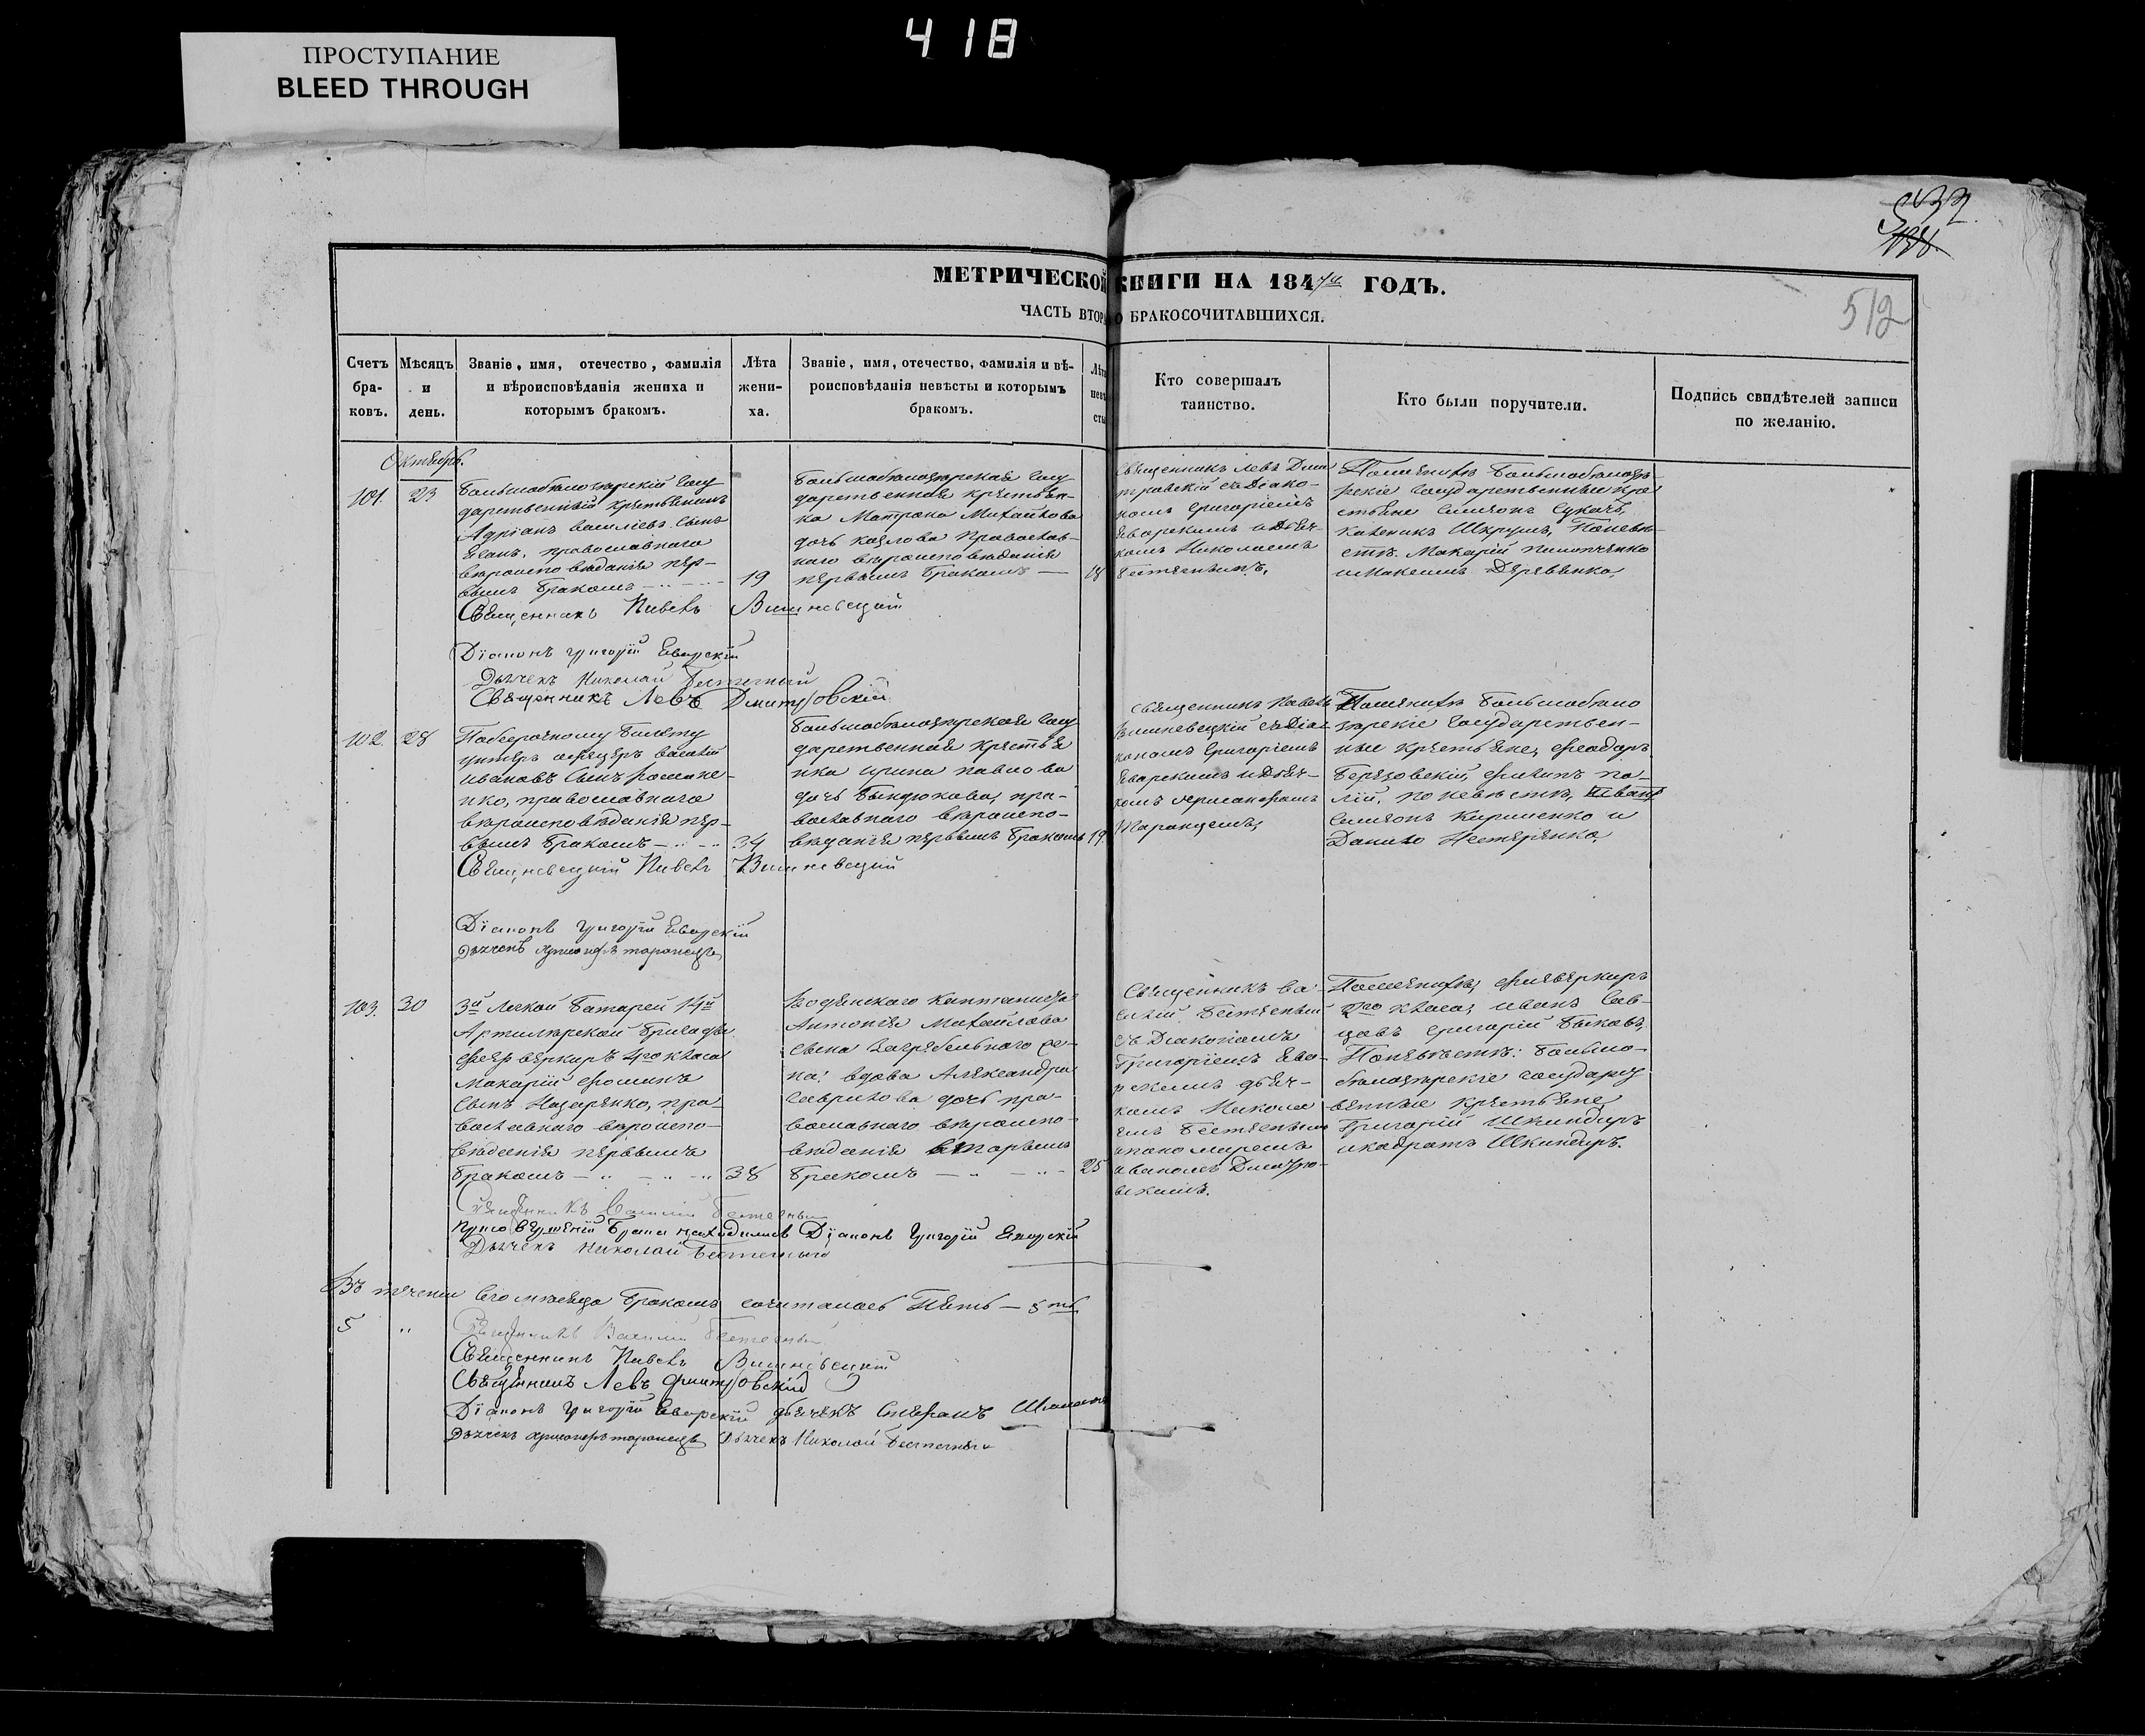 418
ПРОСТУПАНИЕ
BLEED THROUGH
512
МЕТРИЧЕСКОЙ КНИГИ НА 184 ГОДЪ.
ЧАСТЬ ВТОР О БРАКОСОЧИТАВШИХСЯ.
Счетъ бра-
ковъ.
Мѣсяцъ
и
день.
Званіе, имя, отечество, фамилія
и вѣроисповѣданія жениха и
которымъ бракомъ.
Лѣта
жени-
ха.
Званіе, имя, отечество, фамилія и вѣ-
роисповѣданія невѣсты и которымъ
бракомъ.
Лѣта
невѣ
сты
Кто совершалъ
таинство.
Кто были поручители.
Подпись свидѣтелей записи
по желанію.
Октябрь.
101. 23
Большобѣлозерскій Госу
дарственный крестьянинъ
Адріанъ Василіевъ сынъ
православнаго
вѣроисповѣданія пер-
вымъ бракомъ
19
Большобѣлозерская Госу
дарственная крестьян-
ка Матрона Михайлова
дочь Козлова православ-
наго вѣроисповѣданія
первымъ бракомъ
18
Священникъ Левъ Дми
тровскій съ Діако-
номъ Григоріемъ
Еварскимъ и Дьяч-
комъ Николаемъ
По женихѣ Большобѣлозер-
скіе Государственные кре
стьяне Симеонъ Сукачъ,
По невѣ-
стѣ. Макарій Пилипченко
и Максимъ Деревянко,
Священникъ Павелъ Вишневецкій
Діаконъ Григорій Еварскій
Дьячекъ Николай
Священникъ Левъ Дмитровскій
102. 28
По безсрочному билету
унтеръ офицеръ Василій
Ивановъ сынъ Романе-
нко, православнаго
вѣроисповѣданія пер-
вымъ бракомъ
34
Большобѣлозерская Госу
дарственная крестья
нка Ирина Павлова
дочь Бындюкова, пра-
вославнаго вѣроиспо-
вѣданія первымъ бракомъ
19
Священникъ Павелъ
Вишневецкій съ Діа-
кономъ Григоріемъ
Еварскимъ и Дьяч-
комъ
По женихѣ Большобѣло
зерскіе Государствен-
ные крестьяне, Феодоръ
Березовскій, Филипъ Па-
лій, по невѣстѣ,
Симеонъ Кириченко и
Данило Нестеренко,
Павелъ Вишневецкій
Діаконъ Григорій Еварскій
Дьячекъ
103. 30
3й Легкой Батареи 14й
Артилерской Бригады
фейерверкиръ 4го класа
Макарій Фоминъ
сынъ Назаренко, пра-
вославнаго вѣроиспо-
вѣданія первымъ
бракомъ
38
Водянскаго
Антонія Михайлова
сына Загребельнаго же-
на: вдова Александра
Гаврилова дочь пра-
вославнаго вѣроиспо-
вѣданія вторымъ
бракомъ
25
Священникъ Ва-
силій
съ Діакономъ
Григоріемъ Ева-
рскимъ дьяч-
комъ Никола
емъ
и пономаремъ
Дмитро-
вскимъ.
По женихѣ, фиерверкиръ
класа, Иванъ Сав-
Григорій Быковъ,
По невѣстѣ: Большо-
бѣлозерскіе Государст
венные крестьяне
Григорій Шкиндиръ
и Кодратъ Шкиндиръ.
Священникъ Василій
При совершеніи брака находились Діаконъ Григорій Еварскій
Дьячекъ Николай
Въ теченіи сего мѣсяца бракомъ сочиталось Пять — 5ть
5
Священникъ Василій
Священникъ Павелъ Вишневецкій
Священникъ Левъ Дмитровскій
Діаконъ Григорій Еварскій дьячекъ Стефанъ
Дьячекъ Дьячекъ Николай